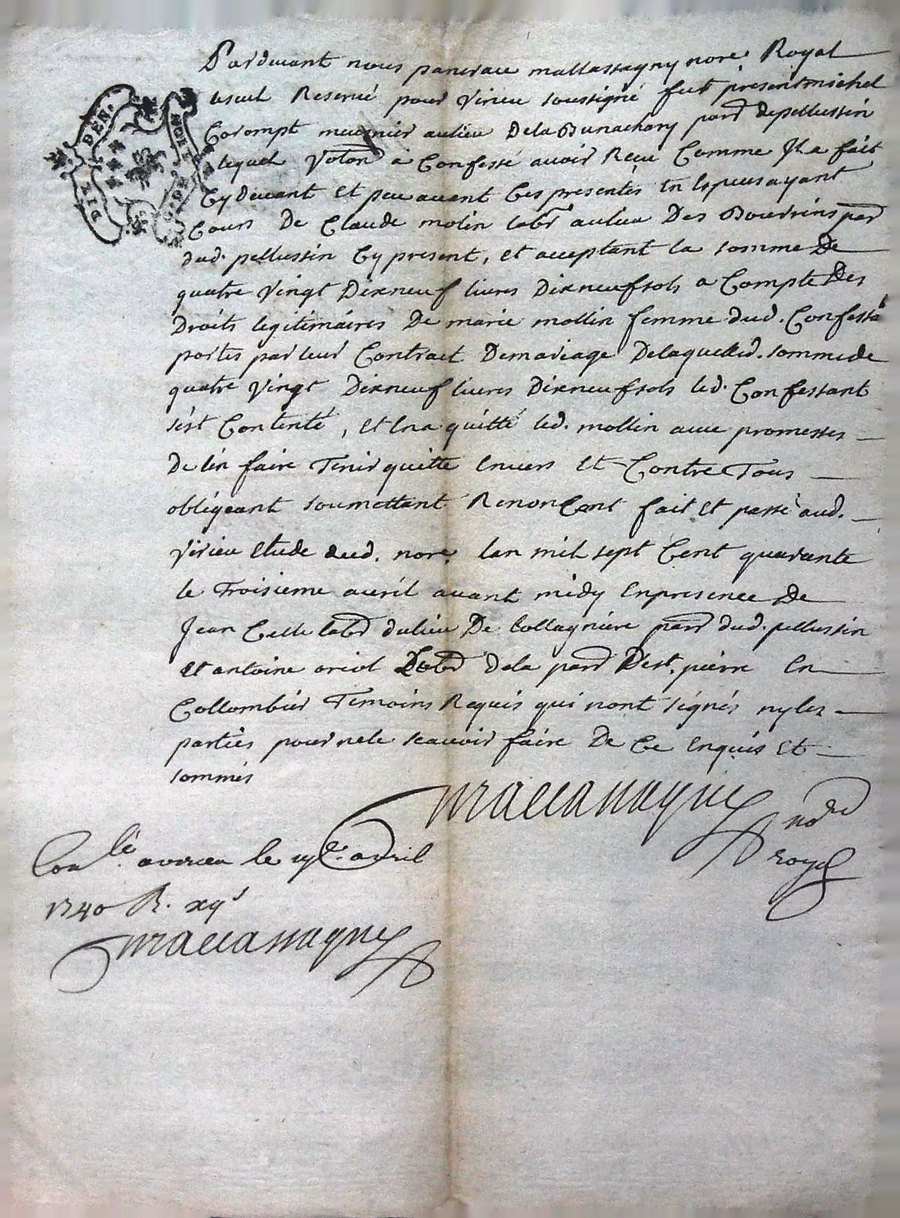 Pardevant nous pancrace mallassagny nore. Royal
seul Reservé pour Virieu soussigné fut présent michel
Corompt meusnier au lieu De la Bunachary parr. de pellussin
lequel Volontt. a Confessé avoir Reçu Comme Il a fait
Cydevant et peu avant Ces presentes En Espèces ayant
Cours De Claude molin labr. au lieu Des Bourrins parr.
dud. pellussin Cy present, et acceptant la somme De
quatre Vingt Dixneuf livres Dixneuf sols a Compte Des
Droits legitimaires De marie mollin femme dud. Confessa
portés par leur Contract De mariage De laquelle d. somme de
quatre Vingt Dixneuf livres Dixneuf sols led. Confessant
s'est Contenté, et En a quitté led. mollin avec promesses
De l'en faire Tenir quitte Envers et Contre Tous
obligeant soumettant Renoncant fait et passé aud.
Virieu Etude dud. nore. lan mil sept Cent quarante
le Troisieme avril avant midy En presence De
Jean Celle labr. du lieu De Collagnière parr. dud. pellussin
et antoine oriol labr. de la parr. De st. pierre En
Collombier Temoins Requis qui nont signés ny les
parties pour ne le scavoir faire De Ce Enquis et
sommés
mallassagny
nore
royal
Conlé. a virieu le avril
1740 R.
mallassagny
DEN.